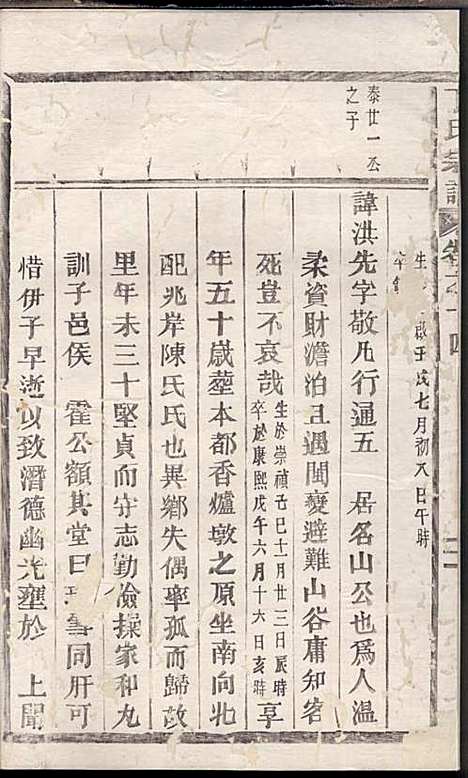 氏宗譜
生
啟壬戌七月初八日午時
泰廿一公
之子
諱洪先字敬凡行通五　居名山公也為人溫
柔資財澹泊丑遇閩變避難山谷庸知客
死豈不哀哉　生於崇禎己巳十一月廿三日辰時　卒於康熙戊午六月十六日亥時　享
年五十歲塟本都香爐墩之原坐南向北
配兆岸陳氏氏也異鄉失偶率孤而歸故
里年未三十堅貞而守志勤儉操家和丸
訓子邑侯　霍公額其堂曰　雪同肝可
惜伊子早逝以致潛德幽光壅於　上聞